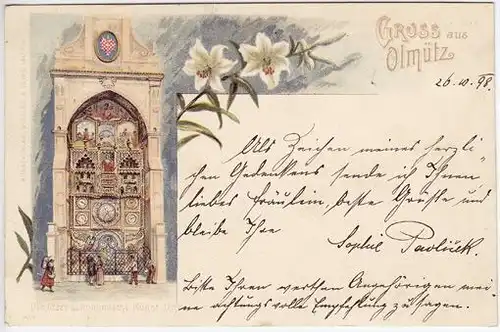 Gruss aus
Olmütz.
26.10.98.
Als Zeichen meines herzli-
chen Gedenkens sende ich Ihnen
liebes Fräulein, beste Grüsse und
bleibe Ihre
Sophie Pavliček.
Bitte Ihren werthen Angehörigen mei-
ne achtungsvolle Empfehlung zu sagen.